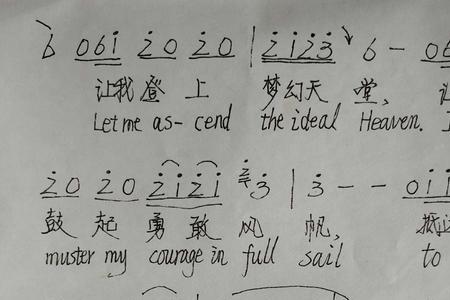 6 061 20 20 | 2123 6 - 06
让我登上 梦幻天堂,
Let me as-cend the ideal Heaven.
20 20 2121 3 | 3 - - 01
鼓起勇敢风帆,
muster my courage in full sail to